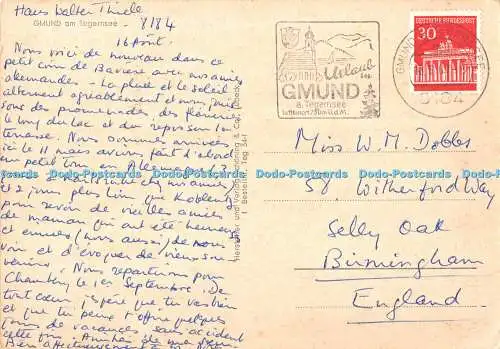 Hans Walter Thiele
GMUND am Tegernsee 8184
16 Août.
Nous voici de nouveau dans ce
petit coin de Bavière avec nos amis
allemands. La pluie et le soleil
alternent agréablement et nous
sons des promenades, des flâneries
le long du lac et du repos sur la
terrasse. Nous sommes arrivés
ici le 11 mais avions fait d'abord
un petit tour en Allemagne
nos amis
et 2 jours plus loin que Koblenz
pour revoir de vieilles amies
de maman qui ont été heureuses
et émues (nous aussi) de nous
voir et d'évoquer de vieux sou-
venirs. Nous repartirons pour
Chambéry le 1er Septembre. De
tout cœur j'espère que tu vas bien
et que tu peux t'offrir quelques
jours de vacances sans accident
cette fois.
Bien affectueusement
Hersteller und Verlag
Bestell-Nr.
Urlaub
in
GMUND
a. Tegernsee
Luftkurort 750m ü.d.M.
DEUTSCHE BUNDESPOST
30
GMUND
8184
Miss W. M. Dobbs
58 Witherford Way
Selly Oak
Birmingham
England
Dodo-Postcards Dodo-Postcards Dodo-Postcards Dodo-Postcards Dodo-Postcards